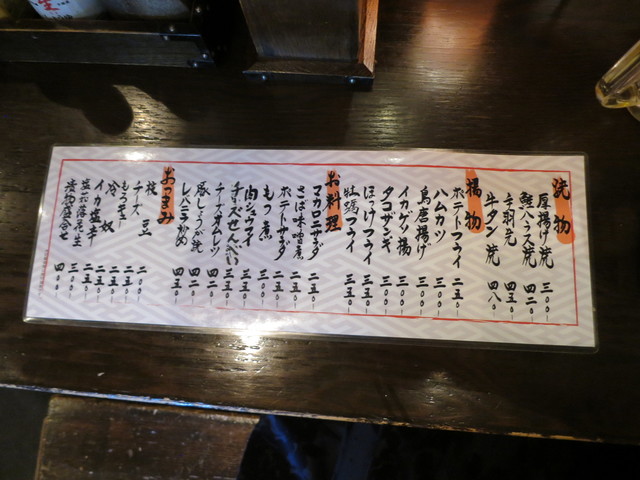 焼物
厚揚げ焼 三〇〇-
鮭ハラス焼 四二〇-
手羽先 四五〇-
牛タン焼 四八〇-
揚物
ポテトフライ 二五〇-
ハムカツ 三〇〇-
鳥唐揚げ 三〇〇-
イカゲソ揚 三〇〇-
タコザンギ 三〇〇-
ほっけフライ 三五〇-
牡蠣フライ 三五〇-
お料理
マカロニサラダ 二五〇-
さば味噌煮 二五〇-
ポテトサラダ 二五〇-
もつ煮 三〇〇-
肉シュウマイ 三五〇-
チーズせんべい 三五〇-
チーズオムレツ 四二〇-
豚しょうが焼 四二〇-
レバニラ炒め 四五〇-
おつまみ
枝豆 二〇〇-
チーズ 二五〇-
冷奴 二五〇-
イカ塩辛 二五〇-
塩茹落花生 三〇〇-
漬物盛合せ 四〇〇-